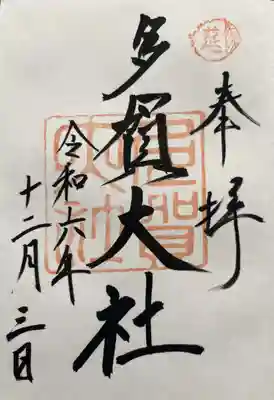 奉拝
多賀大社
令和六年
十二月三日
多賀大社